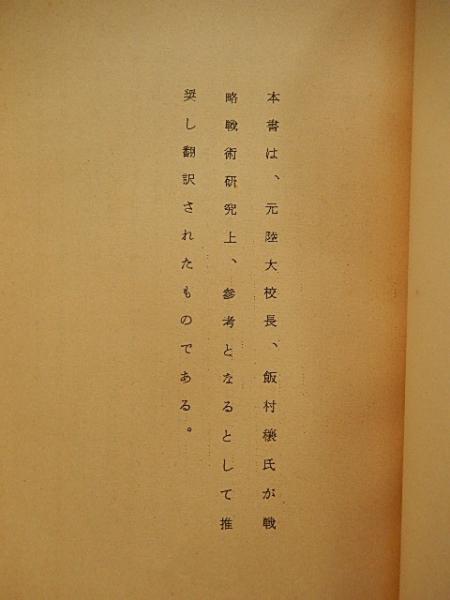 本書は、元陸大校長、飯村穣氏が戦
略戦術研究上、参考となるとして推
奨し翻訳されたものである。